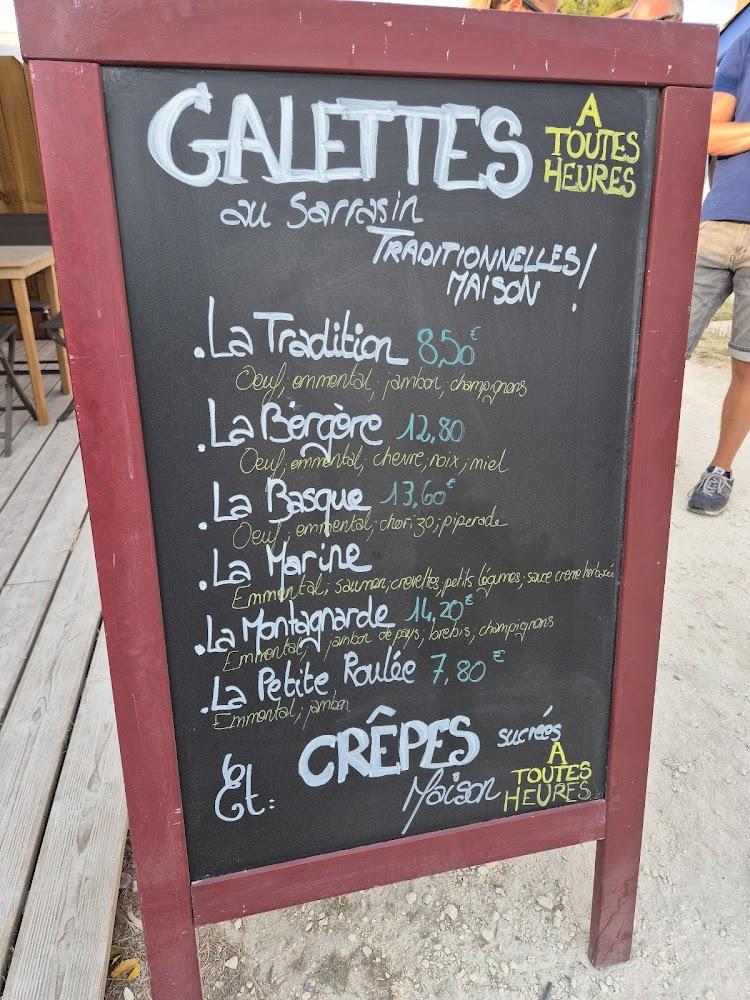 GALETTES
A
TOUTES
HEURES
au Sarrasin
TRADITIONNELLES/
MAISON !
. La Tradition 8,50€
Oeuf; emmental; jambon, champignons
. La Bergère 12,80
Oeuf; emmental; chevre; noix; miel
. La Basque 13,60€
Oeuf; emmental; chorizo; piperade
. La Marine
Emmental; saumon; crevettes; petits légumes; sauce creme herbacée
. La Montagnarde 14,20€
Emmental; jambon de pays; brebis; champignons
. La Petite Roulée 7,80€
Emmental; jambon
Et: CRÊPES sucrées
Maison
A
TOUTES
HEURES